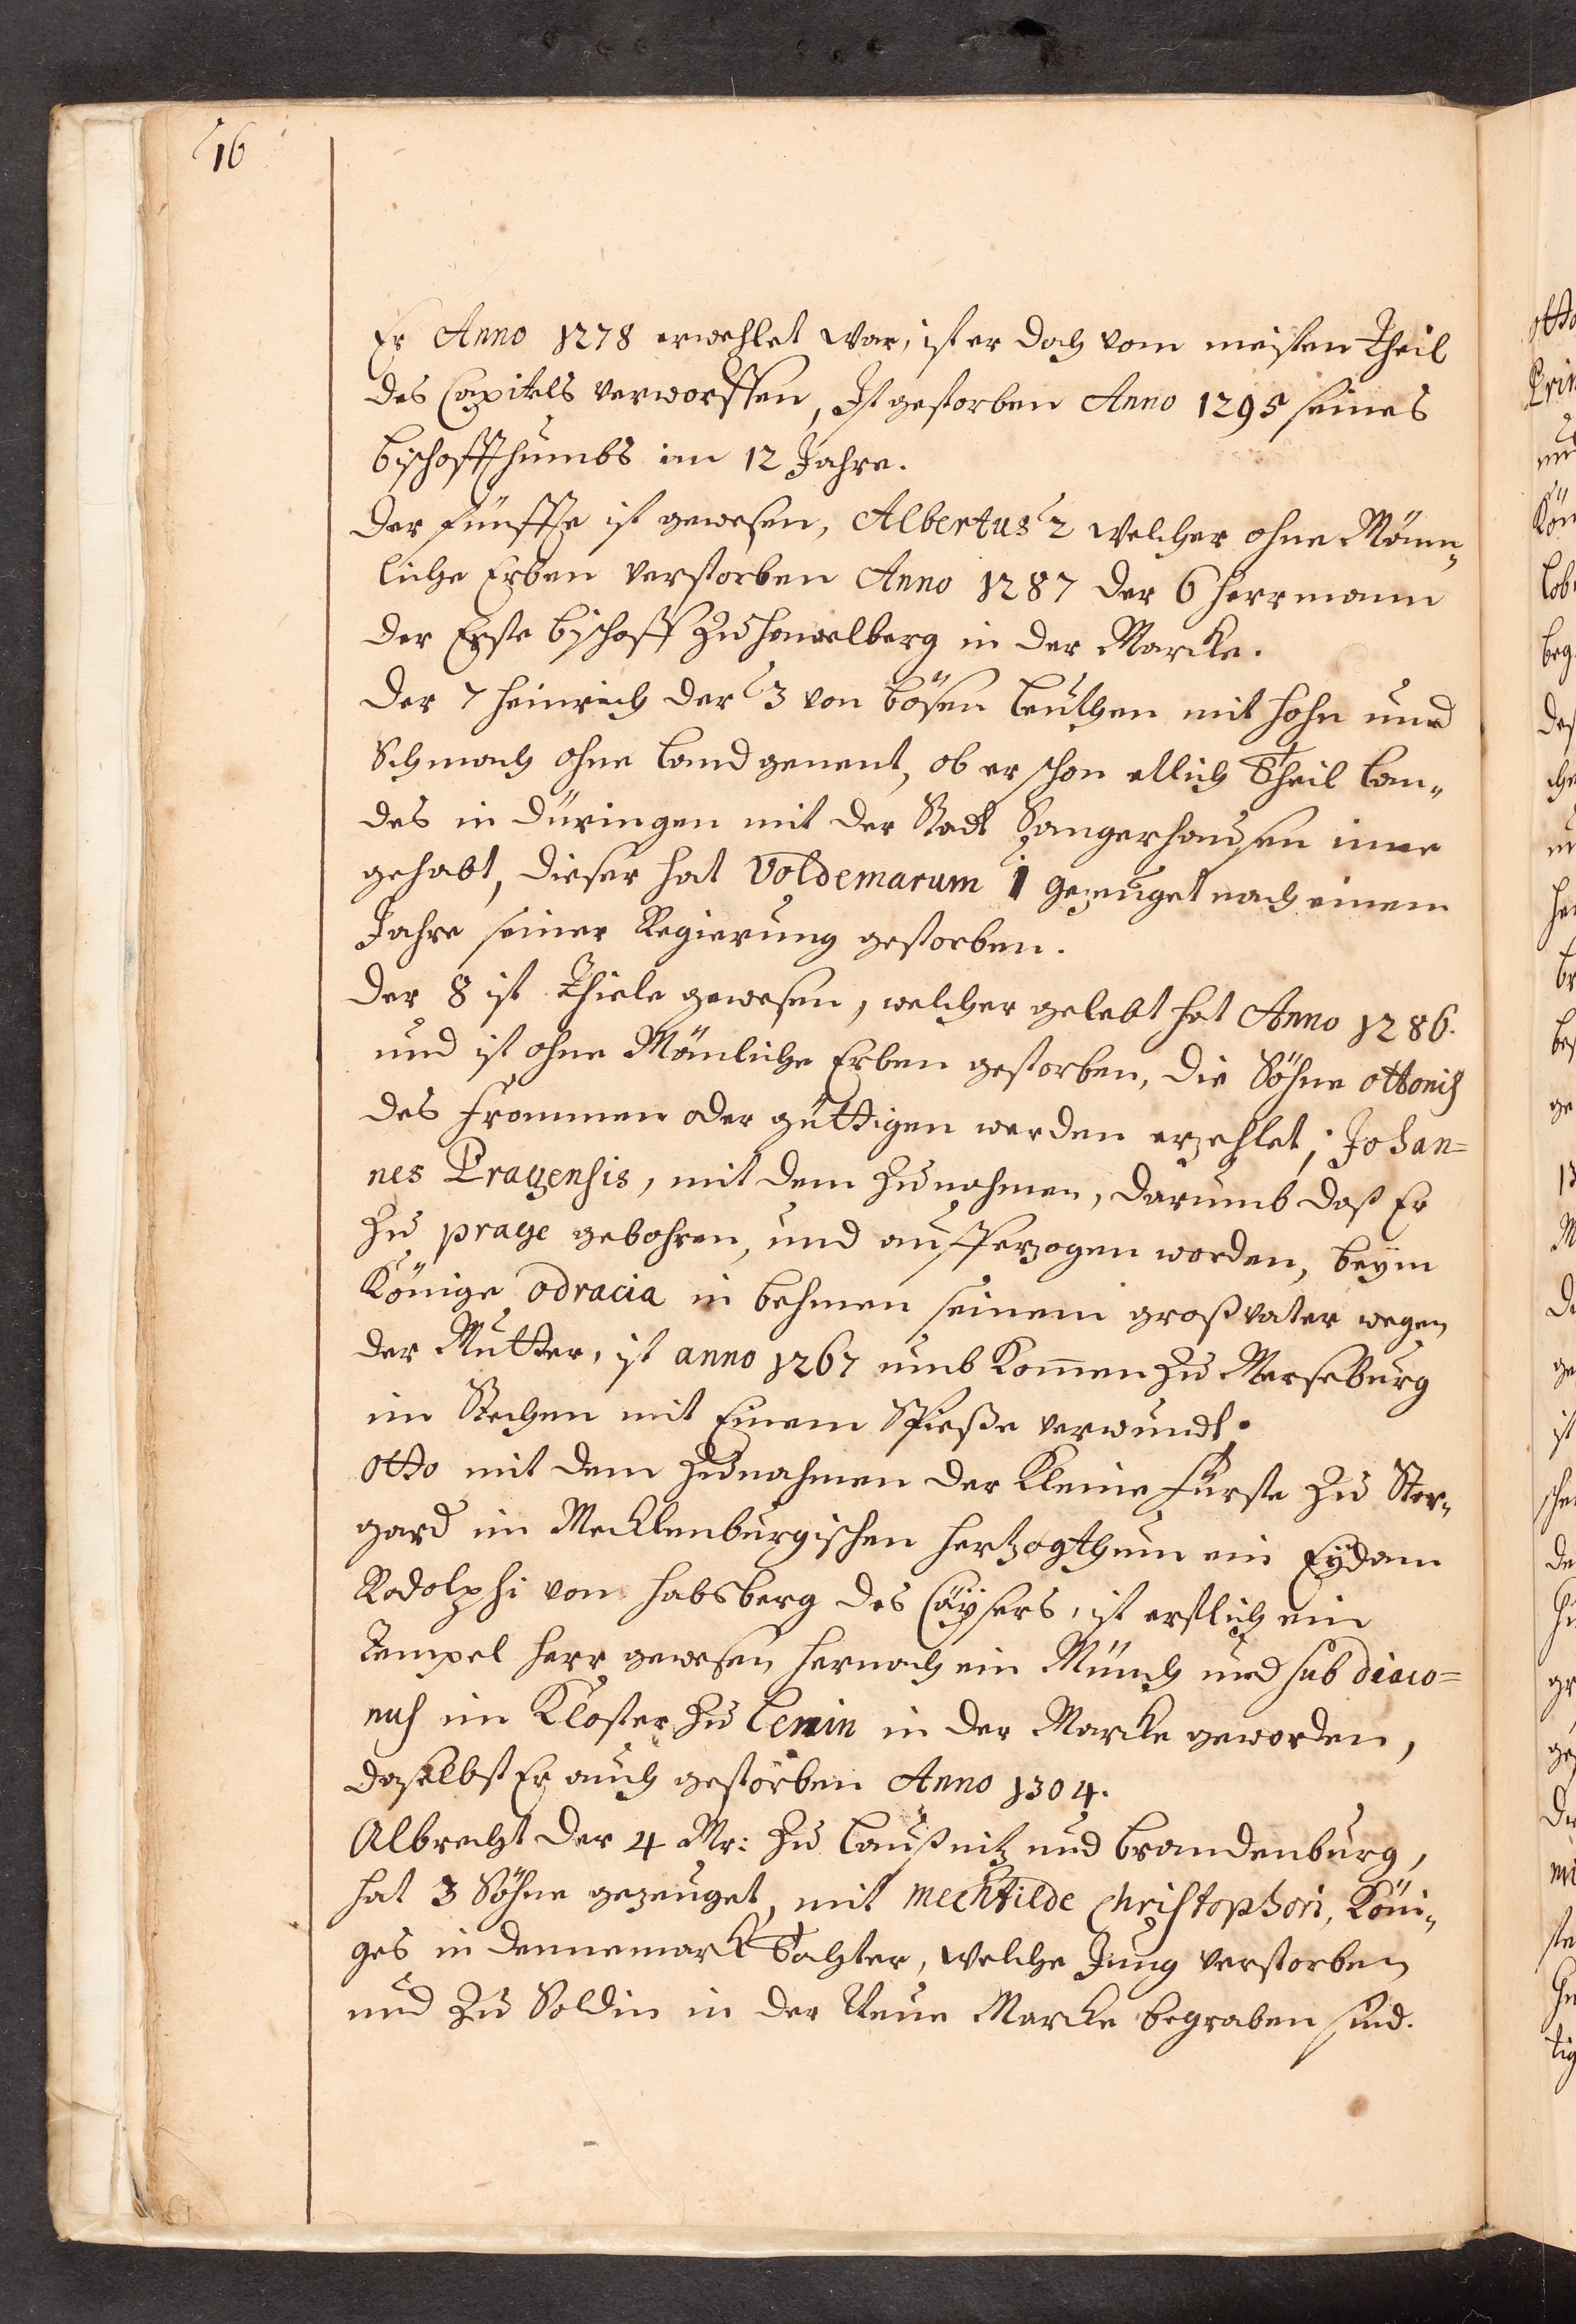 16
Er Anno 1278 erwehlet war, ist er doch vom meisten Theil
des Capitels verworffen, Ist gestorben Anno 1295 seines
bischoffthumbs im 12 Jahre.
Der fünffte ist gewesen, Albertus 2 welcher ohne Männ„
liche Erben verstorben Anno 1287 der 6 Herrmann
der Erste bischoff zu Hawelberg in der Marcke.
Der 7 Heinrich der 3 von bösen Leuthen mit Hohn und
Schmach ohne Land genent, ob er schon etlich Theil Lan„
des in Düringen mit der Stadt Sangerhausen inne
gehabt, dieser hat Voldemarum 1 gezeuget nach einem
Jahre seiner Regierung gestorben.
Der 8 ist Thiele gewesen, welcher gelebt hat Anno 1286.
und ist ohne Mänliche Erben gestorben, Die Söhne ottonis
des Frommen oder güttigen werden erzehlet; Johan=
nes Pragensis, mit dem Zunahmen, darumb daß Er
zu prage gebohren, und aufferzogen worden, beÿm
Könige odracia in behmen seinem großvater wegen
der Mutter, ist anno 1267 umb kom̄en zu Merseburg
im Stechen mit Einem Spieße verwundt.
Otto mit dem Zunahmen der Kleine Fürste zu Ster„
gard im Mecklenburgischen Hertzogthum ein Eÿdam
Rodolphi von Habsberg des Cäÿsers, ist erstlich ein
Tempel Herr gewesen hernach ein Münch und sub diaco=
nus im Kloster zu Lenin in der Marcke geworden,
daselbst Er auch gestorben Anno 1304.
Albrecht der 4 Mr: zu Laußnitz und brandenburg,
hat 3 Söhne gezeuget, mit Mechtilde Christophori, Köni„
ges in dennemark Tohter, welche Jung verstorben
und zu Soldin in der Neue Marcke begraben sind.